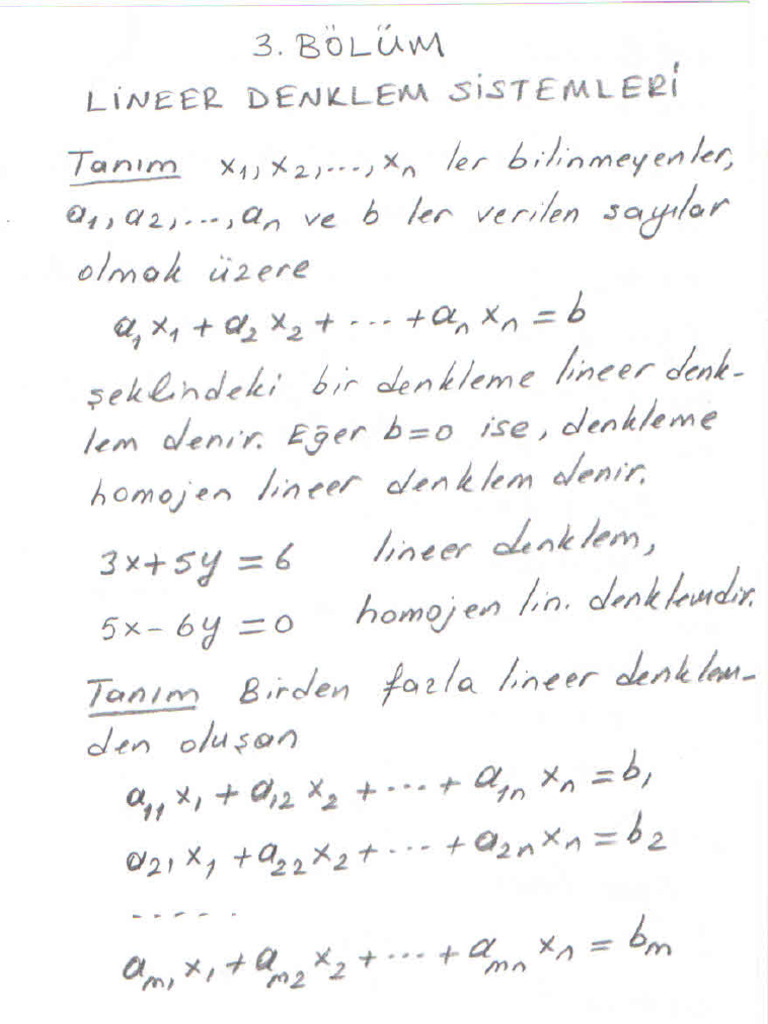 3. BÖLÜM
LİNEER DENKLEM SİSTEMLERİ
Tanım x₁, x₂, ..., xₙ ler bilinmeyenler,
a₁, a₂, ..., aₙ ve b ler verilen sayılar
olmak üzere
a₁x₁ + a₂x₂ + ... + aₙxₙ = b
şeklindeki bir denkleme lineer denk-
lem denir. Eğer b=0 ise, denkleme
homojen lineer denklem denir.
3x+5y = 6 lineer denklem,
5x-6y = 0 homojen lin. denklemdir.
Tanım Birden fazla lineer denklem-
den oluşan
a₁₁x₁ + a₁₂x₂ + ... + a₁ₙxₙ = b₁
a₂₁x₁ + a₂₂x₂ + ... + a₂ₙxₙ = b₂
.....
aₘ₁x₁ + aₘ₂x₂ + ... + aₘₙxₙ = bₘ